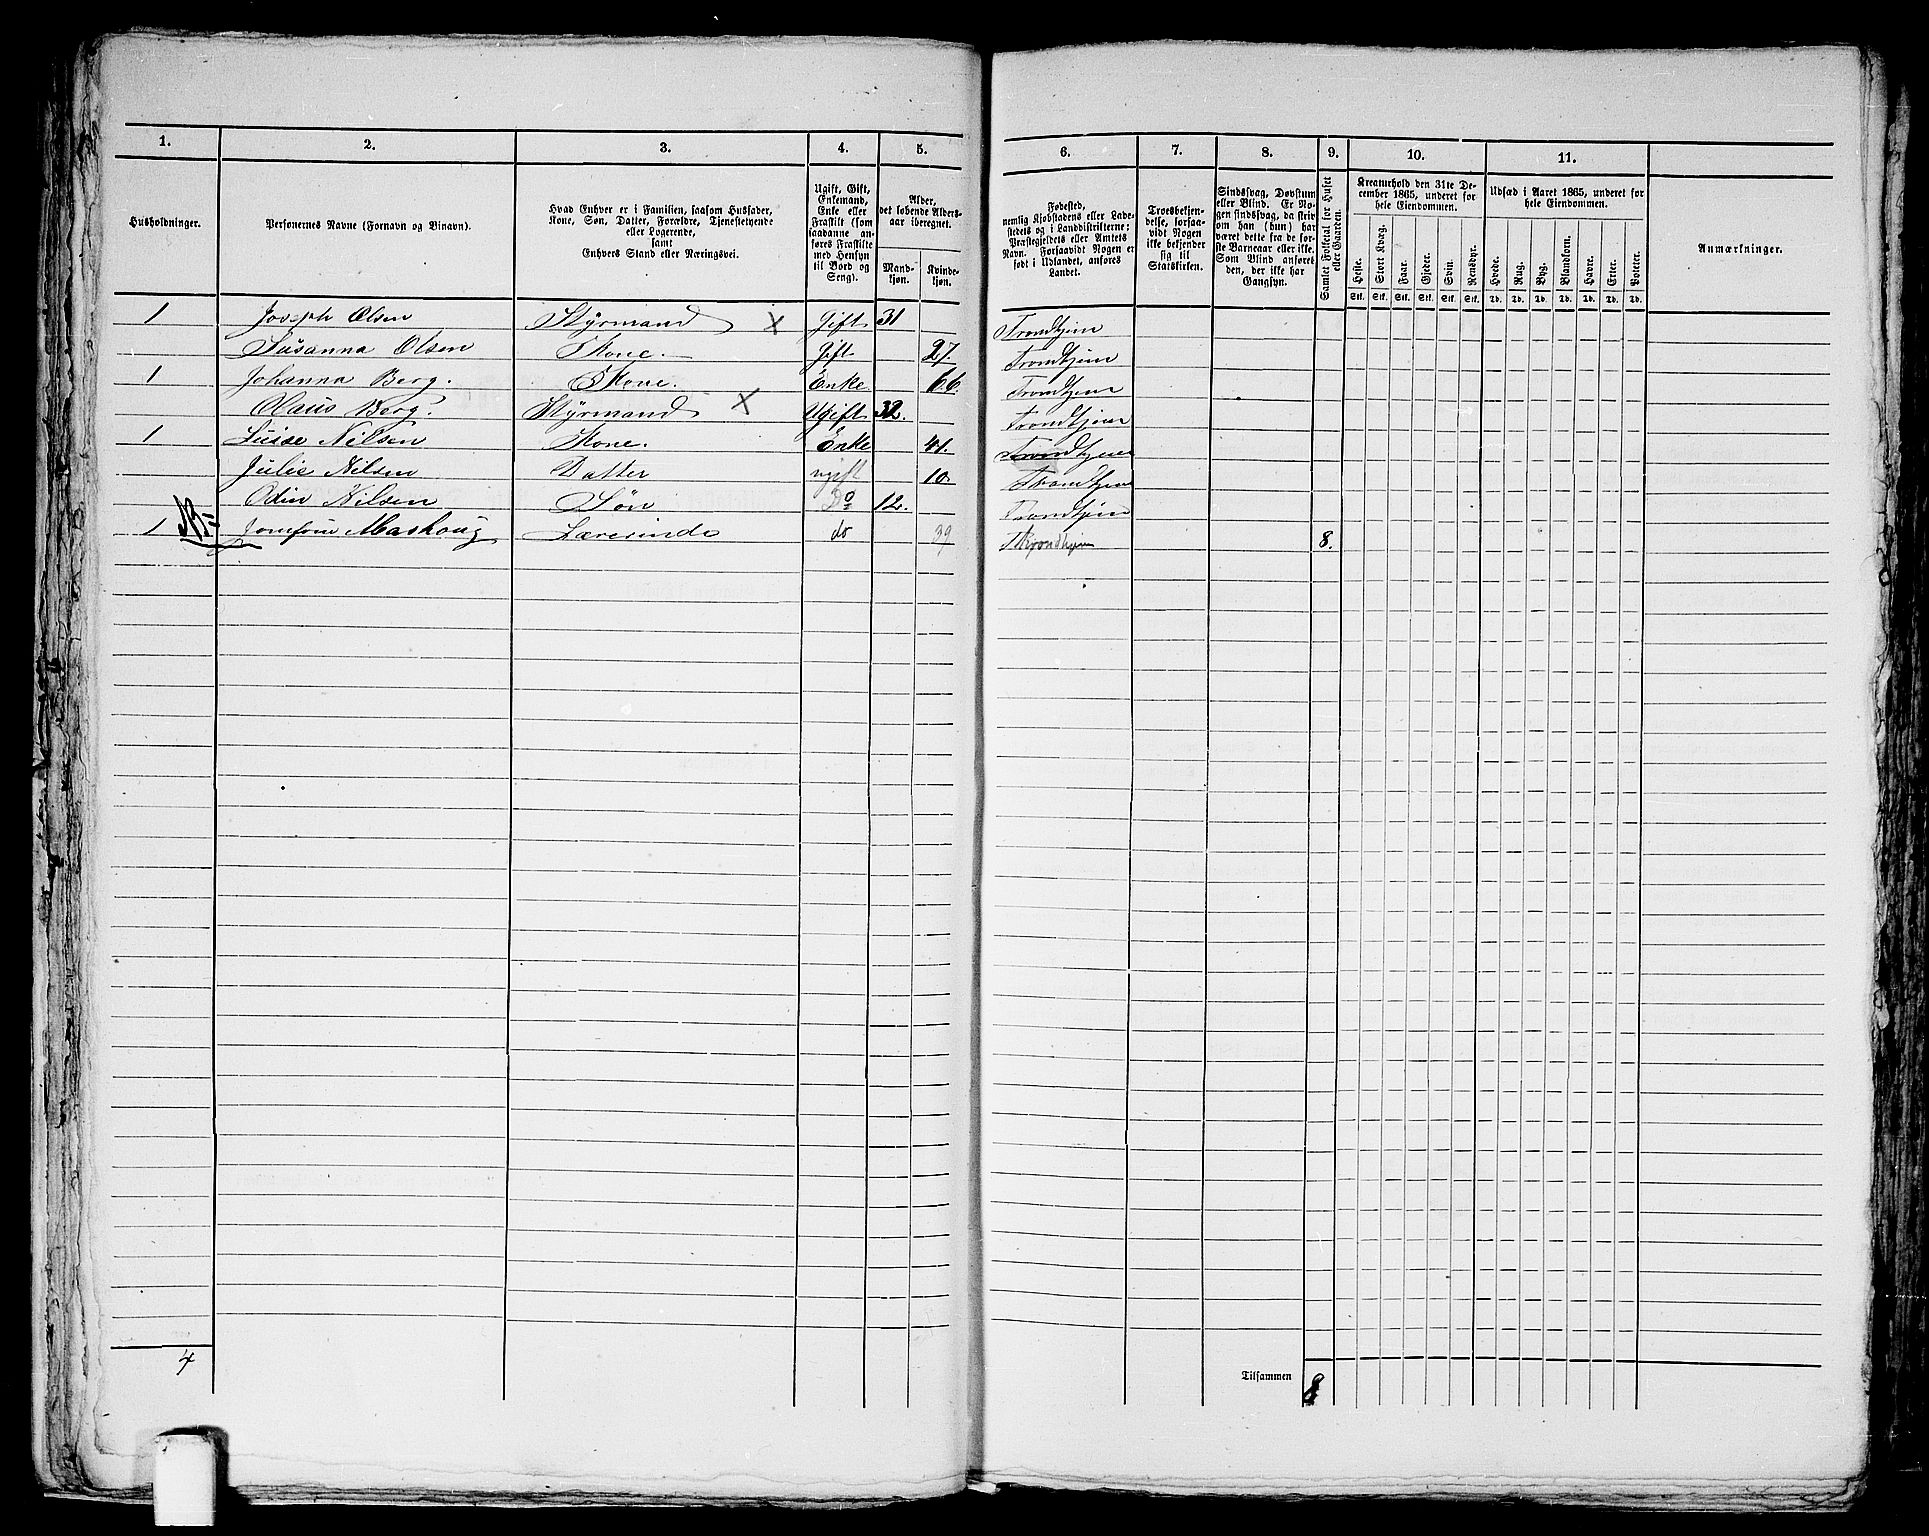 1. 2. 3. 4. 5. 6. 7. 8. 9. 10. 11.
Husholdninger.
Personernes Navne (Fornavn og Binavn).
Hvad Enhver er i Familien, saasom Husfader,
Kone, Søn, Datter, Forældre, Tjenestetyende
eller Logerende,
samt
Enhvers Stand eller Næringsvei.
Ugift, Gift,
Enkemand,
Enke eller
Fraskilt (som
saadanne an-
føres Fraskilte
med Hensyn
til Bord og
Seng).
Alder,
det løbende Alders-
aar iberegnet.
Mand-
kjøn.
Kvinde-
kjøn.
Fødested,
nemlig Kjøbstadens eller Lade-
stedets og i Landdistrikterne:
Præstegjeldets eller Amtets
Navn. Forsaavidt Nogen er
født i Udlandet, anføres
Landet.
Troesbekjen-
delse, forsaa-
vidt Nogen
ikke bekjender
sig til
Statskirken.
Sindssvag, Døvstum
eller Blind. Er No-
gen sindssvag, da skriv
om han (hun) har
været dette fra de før-
ste Barneaar eller ikke.
Som Blind anføres
den, der ikke har
Gangsyn.
Samlet Folketal for Huset
eller Gaarden.
Kreaturhold den 31te De-
cember 1865, underet for
hele Eiendommen.
Heste. Stort Kvæg. Faar. Gjeder. Svin. Rensdyr.
Stk. Stk. Stk. Stk. Stk. Stk.
Udsæd i Aaret 1865, underet for
hele Eiendommen.
Hvede. Rug. Byg. Blandkorn. Havre. Erter. Poteter.
Td. Td. Td. Td. Td. Td. Td.
Anmærkninger.
1 Joseph Olsen Styrmand X Gift 31 Trondhjem
Susanna Olsen Kone. Gift 27. Trondhjem
1 Johanna Berg. Kone. Enke 66. Trondhjem
Olaus Berg. Styrmand X Ugift 32. Trondhjem
1 Luise Nilsen Kone. Enke 41. Trondhjem
Julie Nilsen Datter ugift 10 Trondhjem
Odin Nilsen Søn Do 12. Trondhjem
1 NB= Lærerinde do 39 8.
4 Tilsammen 8